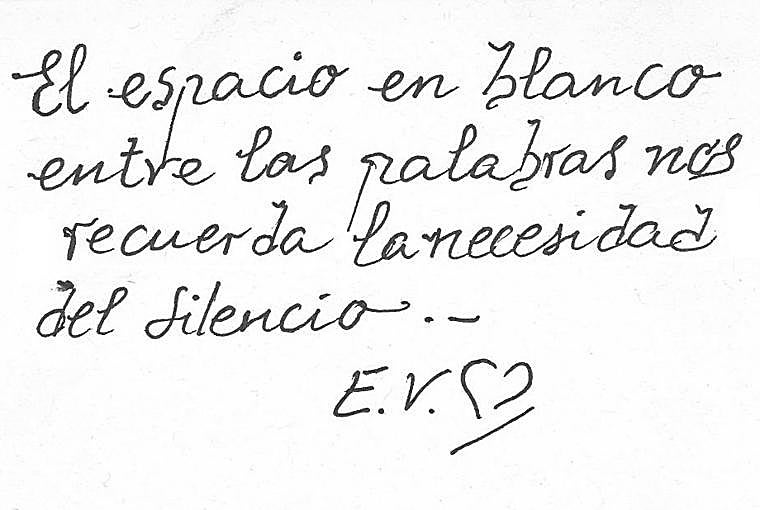 El espacio en blanco
entre las palabras nos
recuerda la necesidad
del silencio.-
E.V.♡